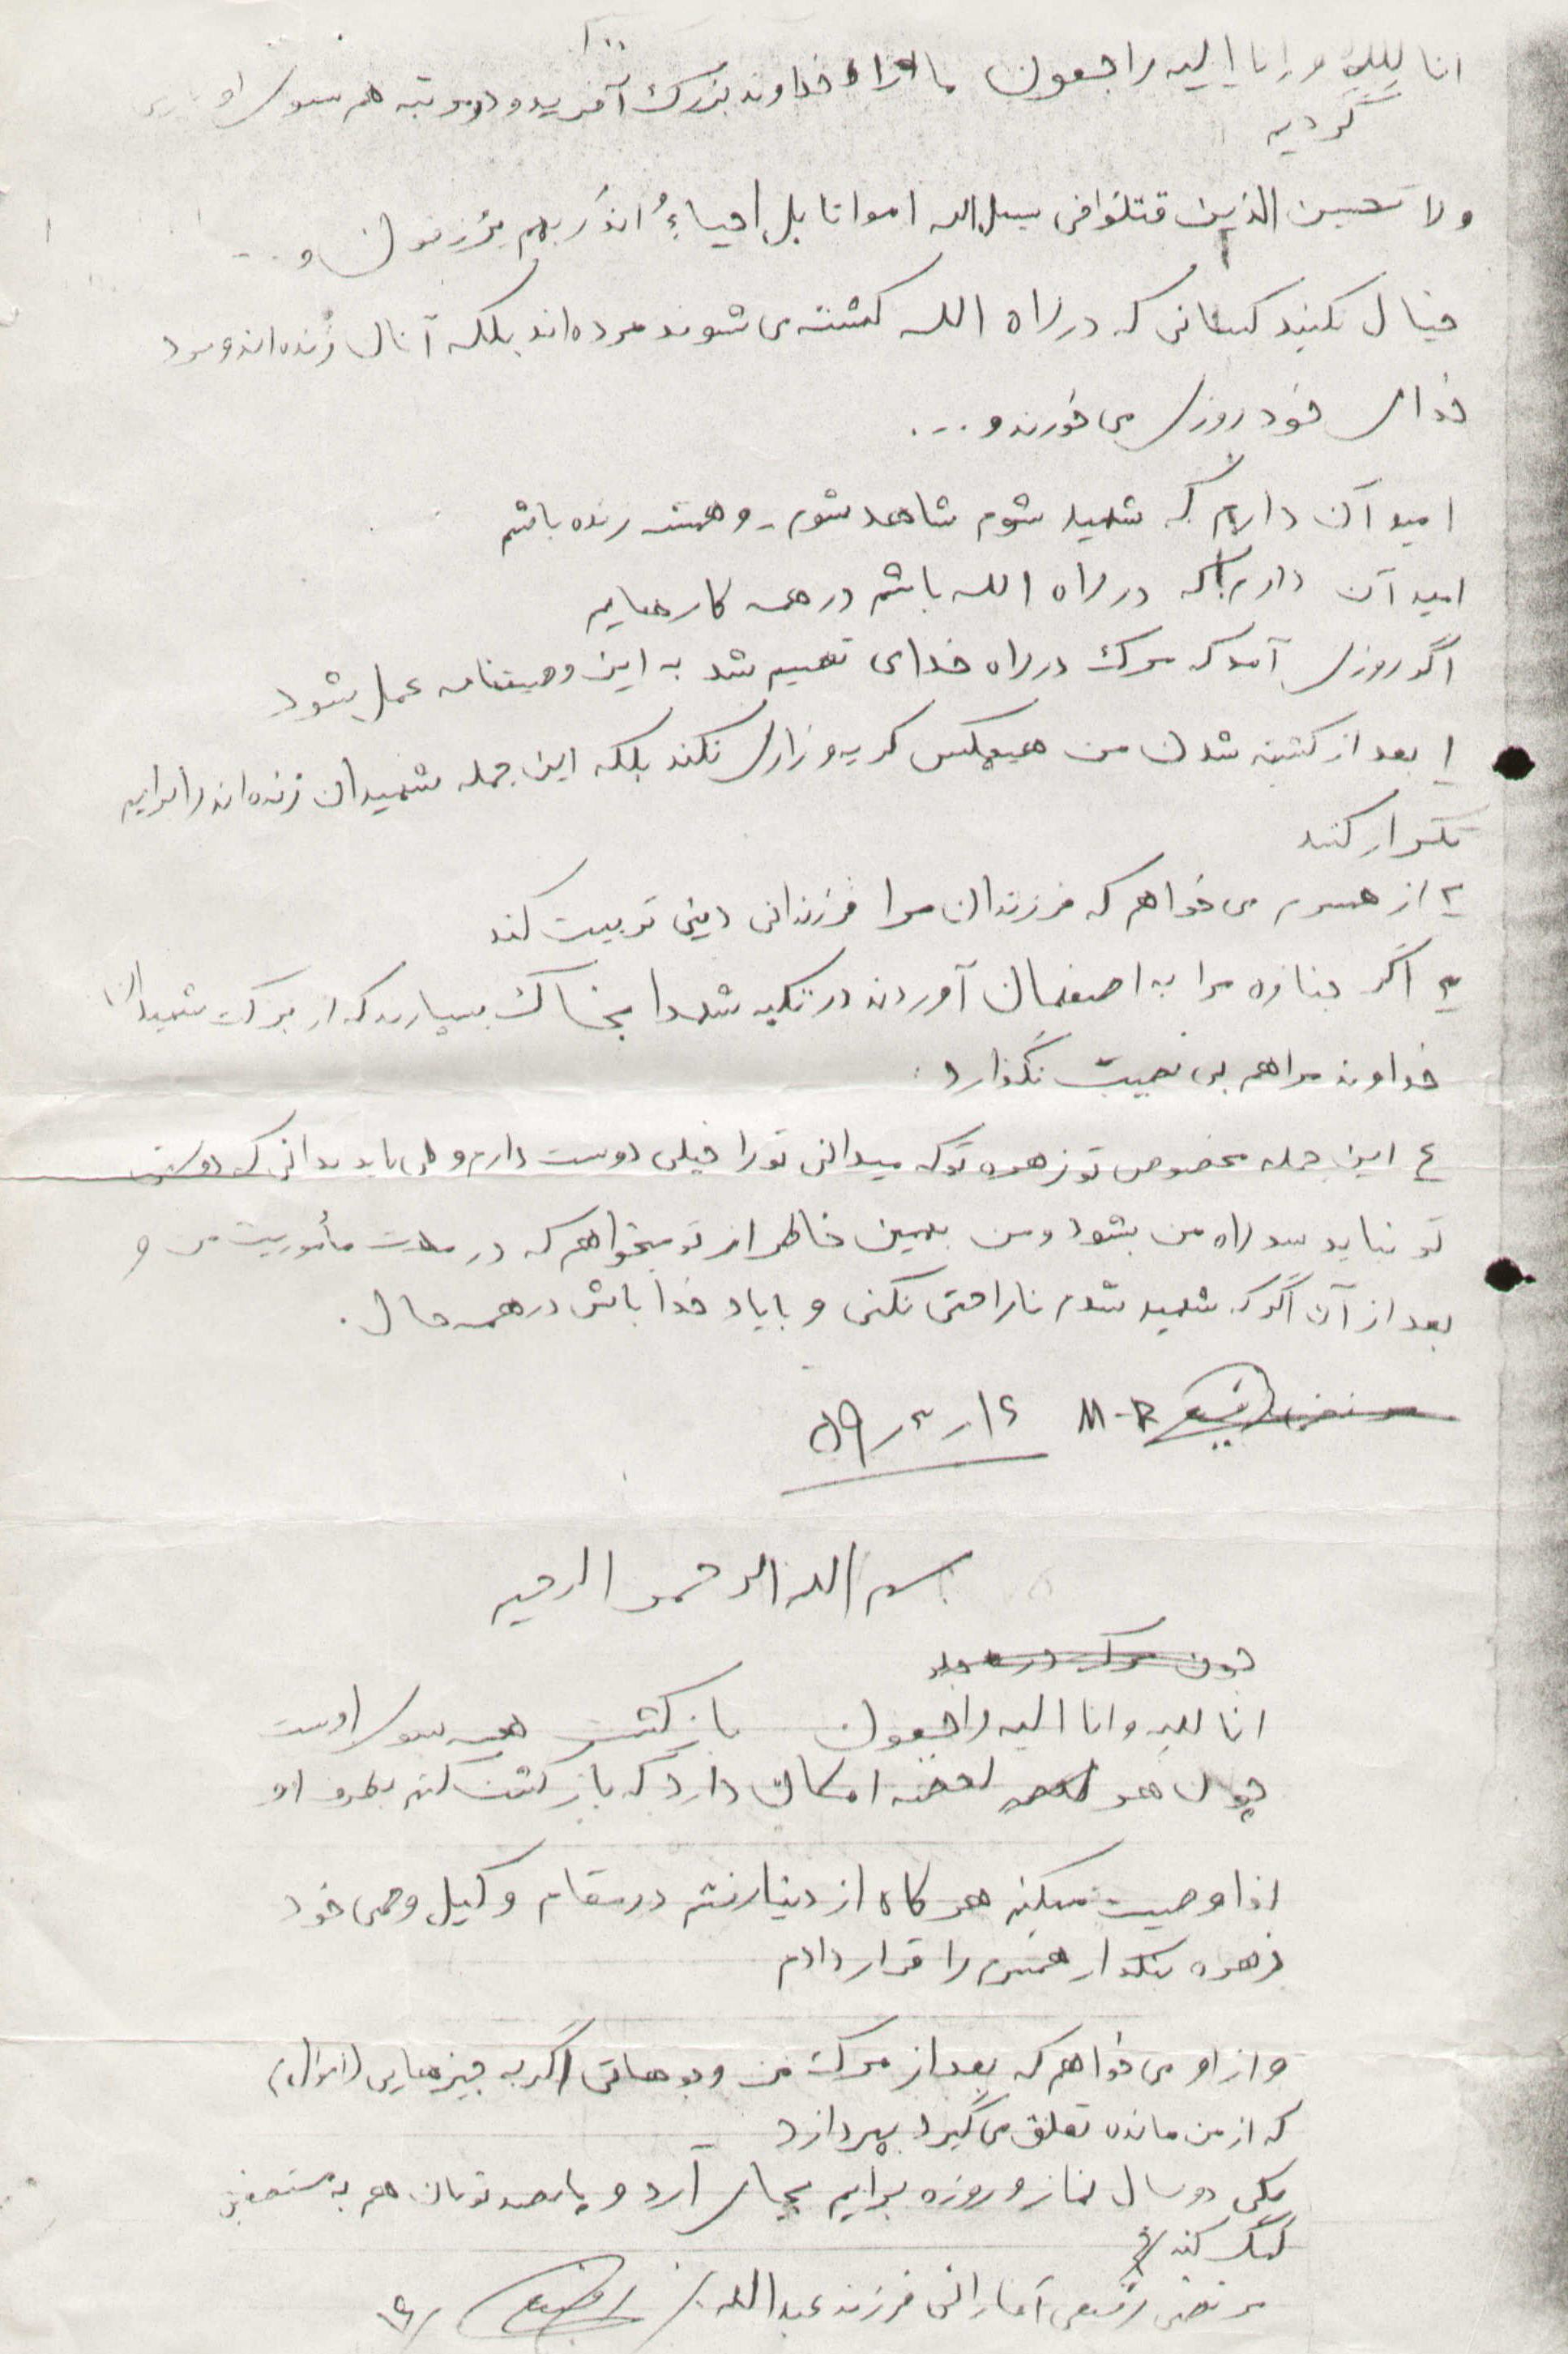 انا لله و انا الیه راجعون ما را خداوند بزرگ آفریده و دومرتبه هم بسوی او
گردیم
ولا تحسبن الذین قتلوا فی سبیل الله امواتا بل احیاءُ اند ربهم یرزقون و...
خیال نکنید کسانی که در راه الله کشته می شوند مرده اند بلکه آنان زنده اند و نزد
خدای خود روزی می خورند و...
امید آن دارم که شهید شوم شاهد شوم - و همیشه زنده باشم
امید آن دارم که در راه الله باشم در همه کارهایم
اگر روزی آمد که مرگ در راه خدای نصیبم شد به این وصیتنامه عمل شود
۱ بعد از کشته شدن من هیچکس گریه و زاری نکند بلکه این جمله شهیدان زنده اند را برایم
تکرار کنند
۲ از همسرم می خواهم که فرزندان مرا فرزندانی دینی تربیت کند
۳ اگر جنازه مرا به اصفهان آوردند در تکیه شهدا بخاک بسپارند که از برکت شهیدان
خداوند مرا هم بی نصیب نگذارد.
۴ این جمله مخصوص تو زهره توکه میدانی تو را خیلی دوست دارم ولی باید بدانی که دوستی
تو نباید سد راه من بشود و من بهمین خاطر از تو میخواهم که در مدت مأموریت من و
بعد از آن اگر که شهید شدم ناراحتی نکنی و با یاد خدا باش در همه حال.
مرتضی رفیعی M-R ۵۹/۲/۱۶
بسم الله الرحمن الرحیم
چون مرگ در
انا لله و انا الیه راجعون بازگشت همه بسوی اوست
چون هر لحظه امکان دارد که بازگشت کنم بطرف او
لذا وصیت میکنم هر گاه از دنیا رفتم در مقام وکیل وصی خود
زهره همسرم را قرار دادم
و از او می خواهم که بعد از مرگ من وجوهاتی اگر به چیزهایی (اموال)
که از من مانده تعلق می گیرد بپردازد
یکی دو سال نماز و روزه برایم بجای آرد و پانصد تومان هم به مستضعفین
کمک کند
مرتضی رفیعی فرزند عبدالله